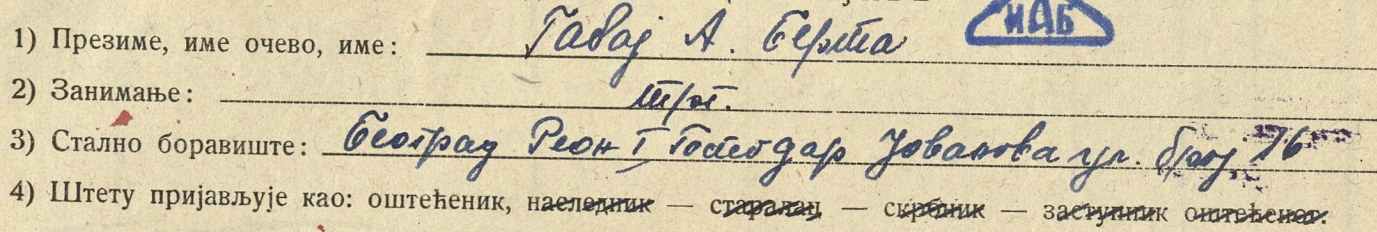 ИАБ
1) Презиме, име очево, име: Габај А. Берта
2) Занимање: трг.
3) Стално боравиште: Београд Реон I Господар Јованова ул. број 16
4) Штету пријављује као: оштећеник, наследник — старалац — скрбник — заступник оштећеног.